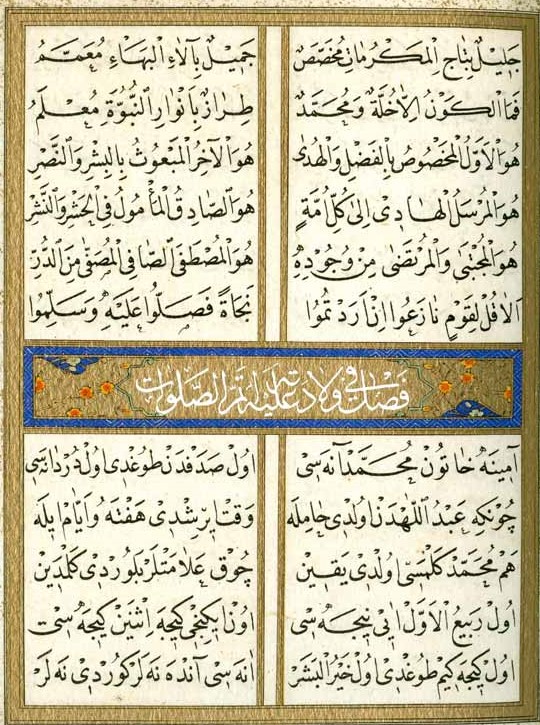 جَلِيلٌ بِتَاجِ الْمَكْرُمَاتِ مُخَصَّصٌ جَمِيلٌ بِآلَاءِ الْبَهَاءِ مُعَمَّمُ
فَمَا الْكَوْنُ اِلَّا حُلَّةٌ وَمُحَمَّدٌ طِرَازٌ بِاَنْوَارِ النُّبُوَّةِ مُعْلَمُ
هُوَ الْاَوَّلُ الْمَخْصُوصُ بِالْفَضْلِ وَالْهُدٰى هُوَ الْآخِرُ الْمَبْعُوثُ بِالْبِشْرِ وَالنَّصْرِ
هُوَ الْمُرْسَلُ الْهَادِي اِلٰى كُلِّ اُمَّةٍ هُوَ الصَّادِقُ الْمَأْمُولُ فِي الْحَشْرِ وَالنَّشْرِ
هُوَ الْمُجْتَبٰى وَالْمُرْتَضٰى مِنْ وُجُودِهِ هُوَ الْمُصْطَفَى الصَّافِي الْمُصَفّٰى مِنَ الدُّرِّ
اَلَا قُلْ لِقَوْمٍ نَازَعُوا اِنْ اَرَدْتُمُوا نَجَاةً فَصَلُّوا عَلَيْهِ وَسَلِّمُوا
فصل في ولادته عليه اتم الصلوات
آمِينَه خَاتُونْ مُحَمَّدْ آنَه سِى اُولْ صَدَفْدَنْ طُوغْدِى اُولْ دُرْدَانَه سِى
چُونْكِه عَبْدُ اللّٰهْدَنْ اُولْدِى حَامِلَه وَقْتْ اِيرِشْدِى هَفْتَه وَ اَيَّامْ اِيلَه
هَمْ مُحَمَّدْ كَلْمَسِى اُولْدِى يَقِينْ چُوقْ عَلَامَتْلَرْ بِلُورْدِى كَلْمَدِينْ
اُولْ رَبِيعُ الْاَوَّلْ آيِى نِيجَه سِى اُونْ اِيكِنْجِى كِيجَه اِثْنَيْنْ كِيجَه سِى
اُولْ كِيجَه كِيمْ طُوغْدِى اُولْ خَيْرُ الْبَشَرْ اَنَه سِى آنْدَه نَه لَرْ كُورْدِى نَه لَرْ